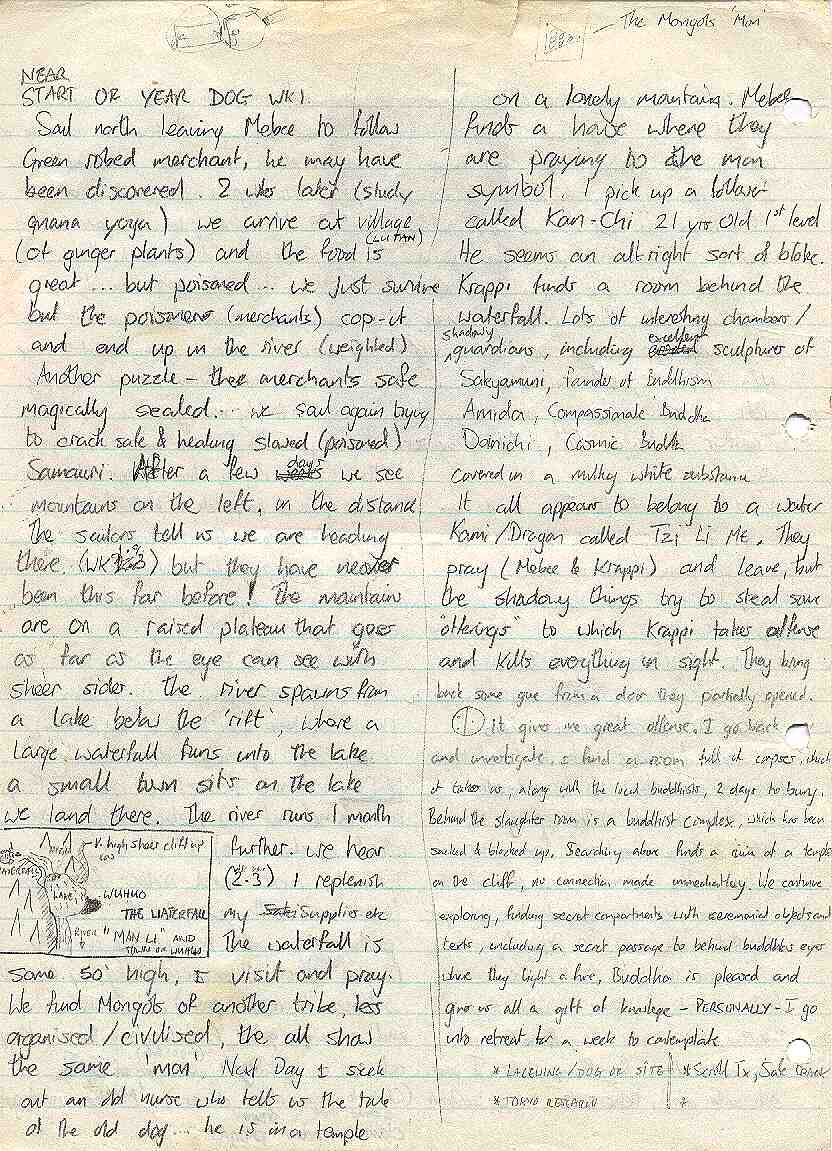 The Mongols 'Mon'
NEAR
START OF YEAR DOG WK1.
Sail north leaving Mebee to follow
Green robed merchant, he may have
been discovered. 2 wks later (study
gnana yoga) we arrive at village
(LUTAN)
(of ginger plants) and the food is
great ... but poisoned ... we just survive
but the poisoners (merchants) cop-it
and end up in the river (weighted)
Another puzzle - the merchants safe
magically sealed... we sail again trying
to crack safe & healing slaved (poisoned)
Samauri. After a few days we see
mountains on the left, in the distance
The sailors tell us we are heading
there. (WK 2.3) but they have never
been this far before! The mountains
are on a raised plateau that goes
as far as the eye can see with
sheer sides. The river spawns from
a lake below the 'rift', where a
Large waterfall runs into the lake
a small town sits on the lake
we land there. The river runs 1 month
further. We hear
(2.3) I replenish
my supplies etc
The waterfall is
V. high sheer cliff up
WATERFALL
LAKE
WUHUO
THE WATERFALL
RIVER "MAN LI" AND
TOWN OF WUHUO
some 50' high, I visit and pray.
We find Mongols of another tribe, less
organised/civilised, the all show
the same 'mon'. Next Day I seek
out an old nurse who tells us the tale
of the old dog... he is in a temple
on a lonely mountain. Mebee
finds a house where they
are praying to the mon
symbol. I pick up a follower
called Kan-Chi 21 yrs old 1st level
He seems an alright sort of bloke.
Krappi finds a room behind the
waterfall. Lots of interesting chambers/
shadowy guardians, including excellent sculptures of
Sakyamuni, founder of Buddhism
Amida, Compassionate Buddha
Dainichi, Cosmic Buddha
covered in a milky white substance
It all appears to belong to a water
Kami/Dragon called Tzi Li Me. They
pray (Mebee & Krappi) and leave, but
the shadowy things try to steal some
"offerings" to which Krappi takes offense
and kills everything in sight. They bring
back some goue from a door they partially opened.
It gives me great offense. I go back
and investigate. I find a room full of corpses, which
it takes us, along with the local buddhists, 2 days to bury.
Behind the slaughter room is a buddhist complex, which has been
sacked & blocked up. Searching above finds a ruin of a temple
on the cliff, no connection made immediately. We continue
exploring, finding secret compartments with ceremonial objects and
texts, including a secret passage to behind buddhas eyes
where they light a fire, Buddha is pleased and
give us all a gift of knowlege - PERSONALLY - I go
into retreat for a week to contemplate
* /DOG OF SITE * Scroll Tx, Safe
* TOKYO RESEARCH *